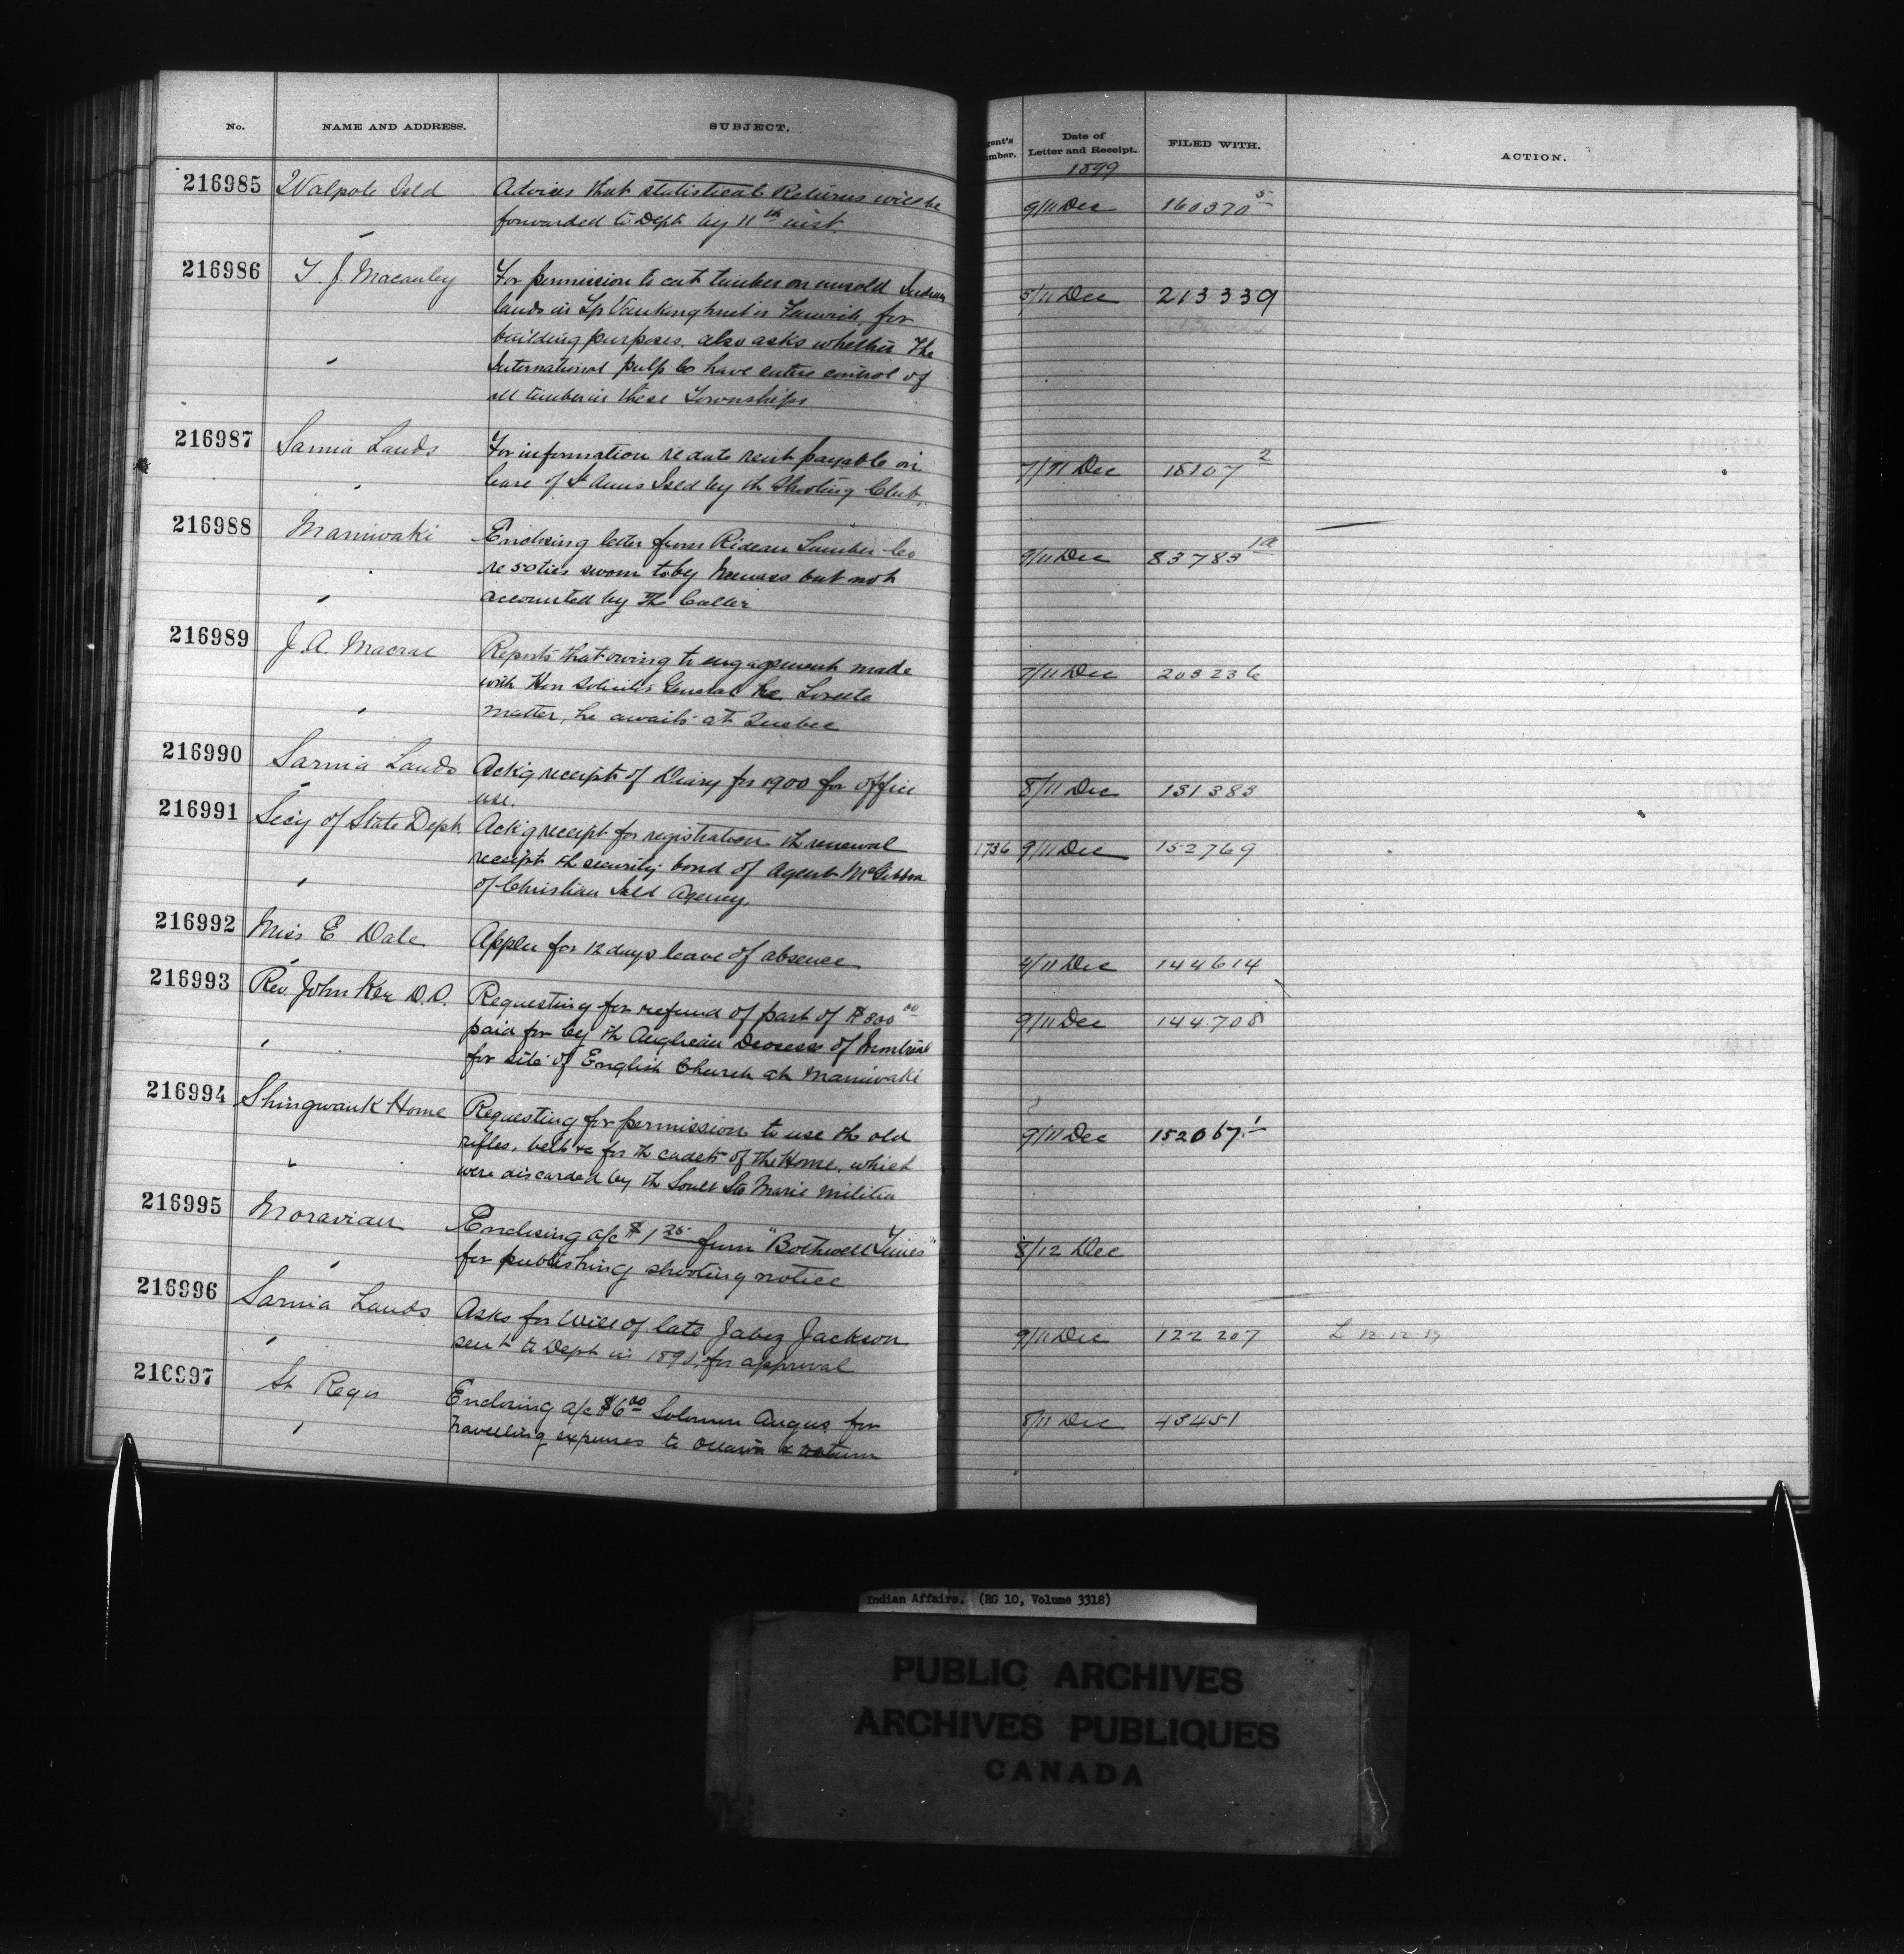 No. NAME AND ADDRESS. SUBJECT. gent's mber. Date of Letter and Receipt. FILED WITH. ACTION.
1899
216985 Walpole Isld Advises that statistical Returns will be 9/11 Dec 160370 5
forwarded to Dept by 11th inst.
216986 T. J. Macauley For permission to cut timber on unsold Indian 5/11 Dec 213339
lands in Tp Vankoughnet or Fenwick, for
building purposes, also asks whether the
International pulp Co have entire control of
all timber in these Townships
216987 Sarnia Lands For information re date rent payable on 7/11 Dec 18107 2
lease of St Annes Isld by th Shooting Club,
216988 Maniwaki Enclosing letter from Rideau Lumber Co 9/11 Dec 83783 1a
re 50 ties sworn to by but not
accounted by the Caller
216989 J. A. Macrae Reports that owing to engagement made 7/11 Dec 203236
with Hon Solicitor General re Lorette
matter, he awaits at Quebec
216990 Sarnia Lands Ack'g receipt of Diary for 1900 for office 8/11 Dec 131383
use.
216991 Secy of State Dept Ack'g receipt for registration th renewal 1736 9/11 Dec 152769
receipt th security bond of Agent McGibbon
of Christian Isld Agency,
216992 Miss E Dale Applies for 12 days leave of absence 4/11 Dec 144614
216993 Rev. John Ker D.D. Requesting for refund of part of $800 00 9/11 Dec 144708
paid for by th Anglican Diocese of Montreal
for site of English Church at Maniwaki
216994 Shingwauk Home Requesting for permission to use th old 9/11 Dec 152067 1
rifles, belts &c for th cadets of the Home, which
were discarded by th Soult Ste Marie militia
216995 Moravian Enclosing a/c $1 25 from "Bothwell Times" 8/12 Dec
for publishing shooting notice
216996 Sarnia Lands Asks for Will of late Jabez Jackson 9/11 Dec 122207 L 12-12-19
sent to Dept in 1890, for approval
216997 St Regis Enclosing a/c $6 00 Solomon Angus for 8/11 Dec 43451
travelling expenses to Ottawa & return
Indian Affairs. (RG 10, Volume 3318)
PUBLIC ARCHIVES
ARCHIVES PUBLIQUES
CANADA